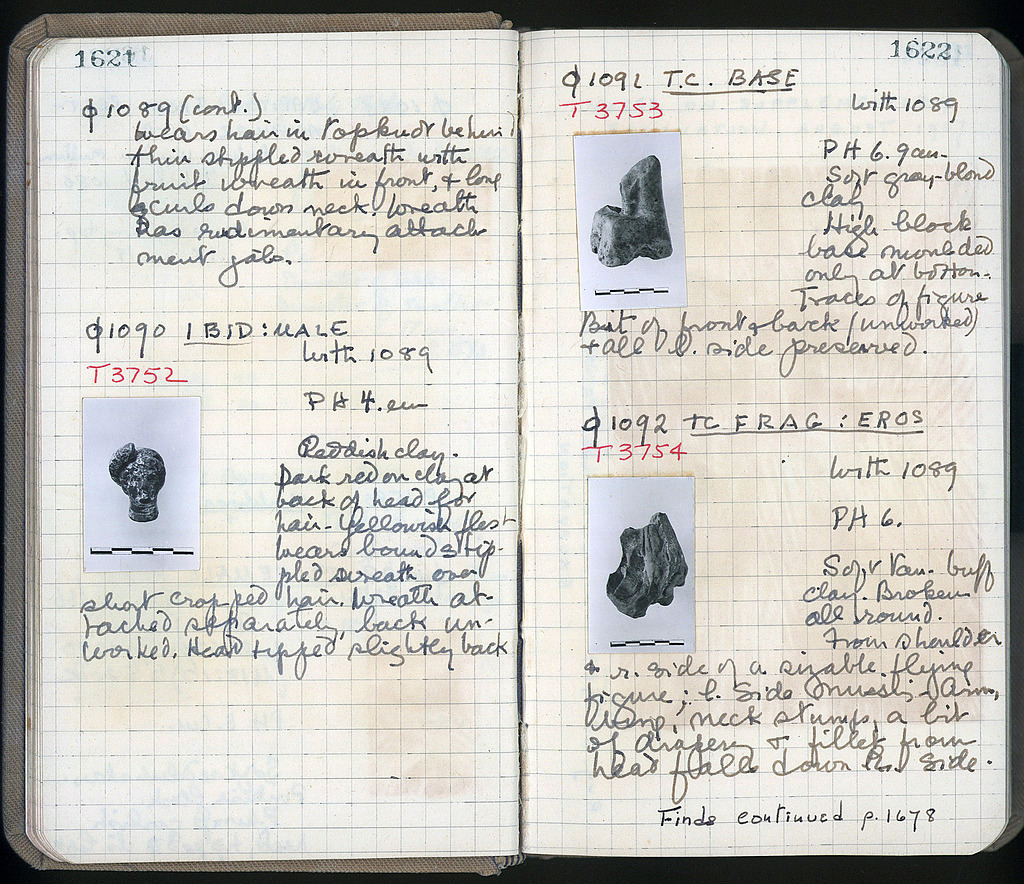 1621
ϕ1089 (cont.)
wears hair in topknot behind
thin stippled wreath with
fruit wreath in front, & long
curls down neck. Wreath
has rudimentary attach
ment gobs.
ϕ1090 IBID: MALE
With 1089
T3752
PH 4. cm
Reddish clay.
Dark red on clay at
back of head for
hair- Yellowish flesh
Wears bound stip-
pled wreath over
short cropped hair. Wreath at-
tached separately, back un-
worked. Head tipped slightly back
1622
ϕ1091 T.C. BASE
T3753
With 1089
PH 6.9 cm-
Soft gray-blond
clay
High block
base moulded
only at bottom-
Traces of figure
Bit of front & back (unworked)
& all l. side preserved.
ϕ1092 TC FRAG: EROS
T3754
With 1089
PH 6.
Soft tan- buff
clay. Broken
all round.
From shoulder
& r. side of a sizable flying
figure; l. side missing- Arm,
wing, neck stumps, a bit
of drapery & fillet from
head falls down side.
Finds continued p. 1678